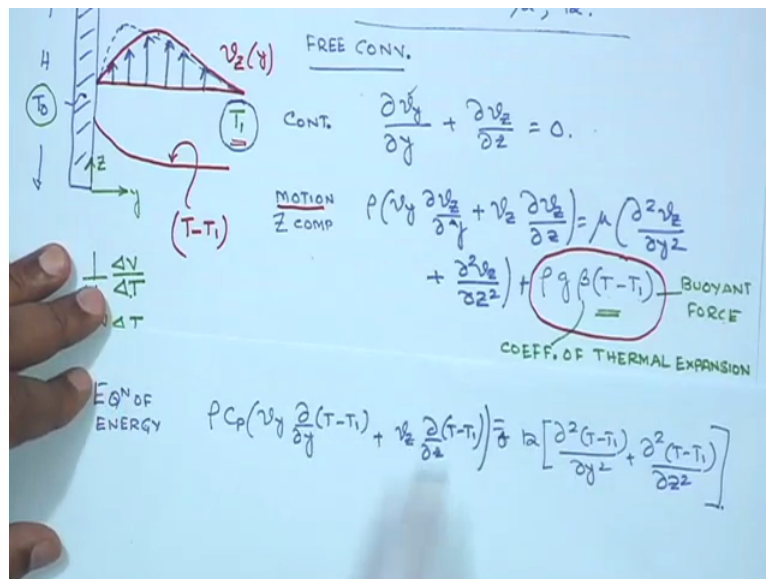 μ, k.
FREE CONV.
H
v_z(y)
T_0
T_1
CONT. ∂v_y/∂y + ∂v_z/∂z = 0.
z
y
(T-T_1)
MOTION
Z COMP
ρ(v_y ∂v_z/∂y + v_z ∂v_z/∂z) = μ(∂²v_z/∂y²
+ ∂²v_z/∂z²) + ρ g β(T-T_1)
BUOYANT
FORCE
COEFF. OF THERMAL EXPANSION
ΔV/ΔT
ΔT
EQ^N OF
ENERGY
ρ C_P(v_y ∂/∂y (T-T_1) + v_z ∂/∂z (T-T_1)) = k[∂²(T-T_1)/∂y² + ∂²(T-T_1)/∂z²]